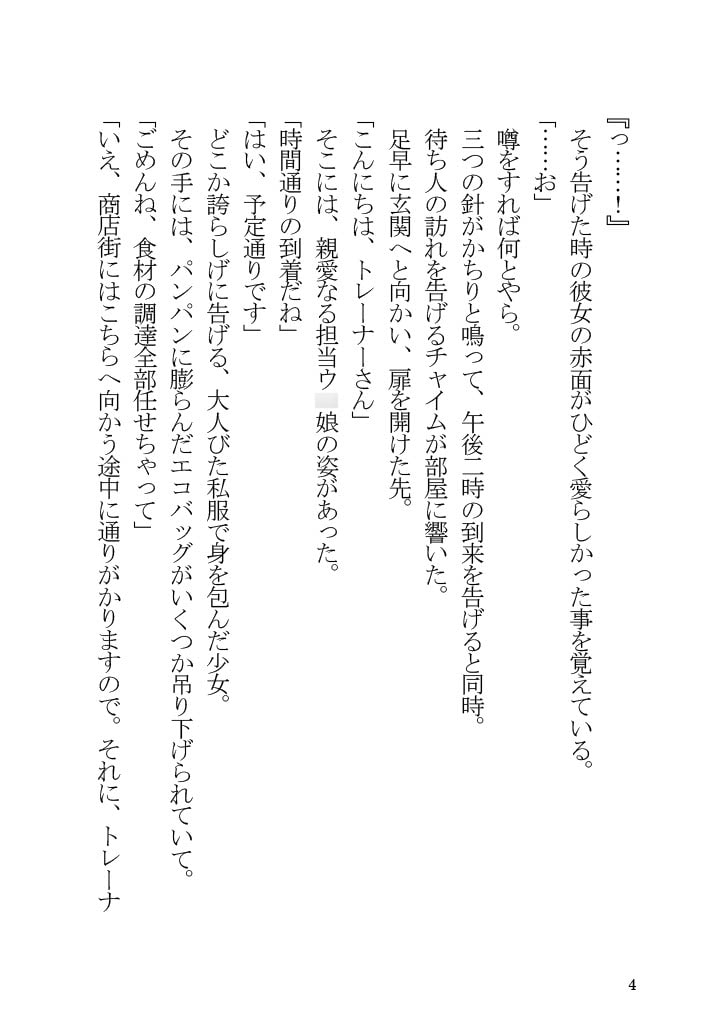 『っ……！』
そう告げた時の彼女の赤面がひどく愛らしかった事を覚えている。
「……お」
噂をすれば何とやら。
三つの針がかちりと鳴って、午後二時の到来を告げると同時。
待ち人の訪れを告げるチャイムが部屋に響いた。
足早に玄関へと向かい、扉を開けた先。
「こんにちは、トレーナーさん」
そこには、親愛なる担当ウ 娘の姿があった。
「時間通りの到着だね」
「はい、予定通りです」
どこか誇らしげに告げる、大人びた私服で身を包んだ少女。
その手には、パンパンに膨らんだエコバッグがいくつか吊り下げられていて。
「ごめんね、食材の調達全部任せちゃって」
「いえ、商店街にはこちらへ向かう途中に通りがかりますので。それに、トレーナ
4